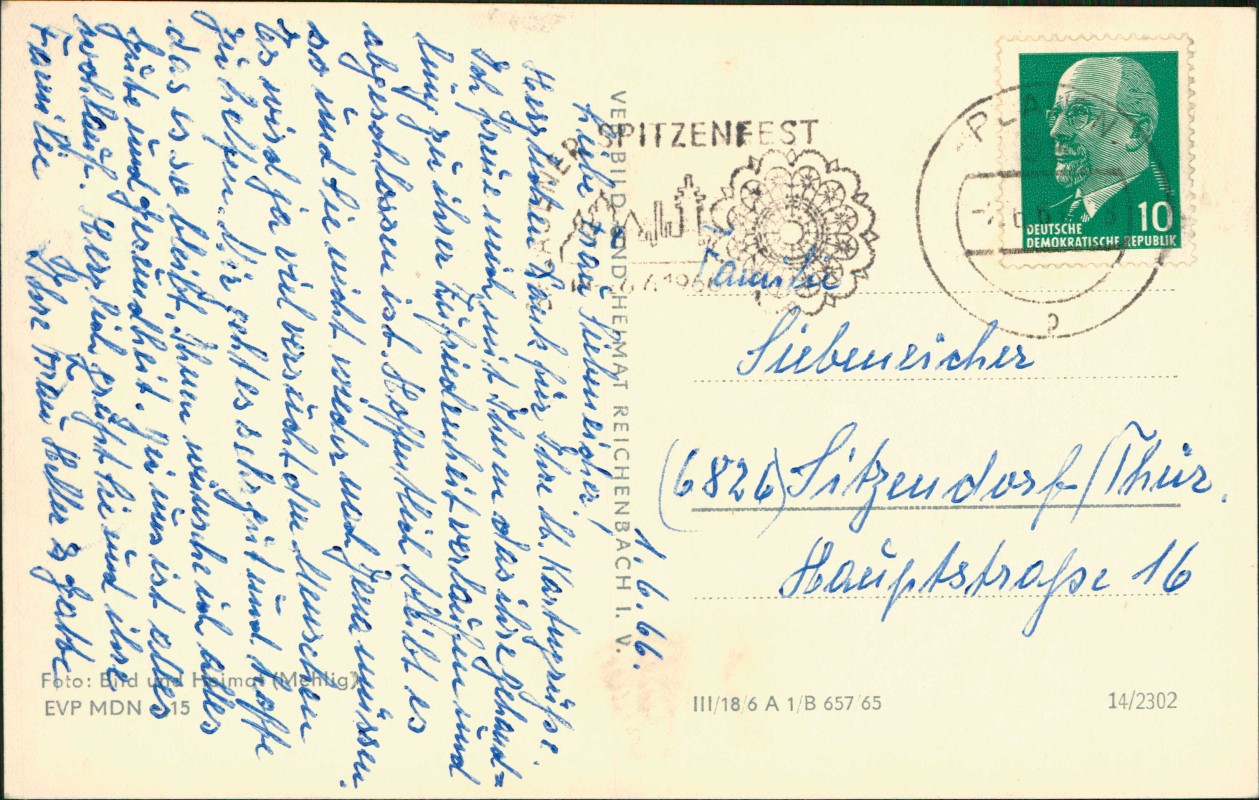 1.6.66.
Liebe Frau Siebeneicher!
Herzlichen Dank für Ihre lb. Kartengrüße.
Ich freue mich mit Ihnen das ihre Behand=
lung zu ihrer Zufriedenheit verlaufen und
abgeschlossen ist. Hoffentlich bleibt es
so und Sie nicht wieder nach Jena müssen.
Es wird ja viel versucht den Menschen
zu helfen. Mir geht es sehr gut und hoffe
das es so bleibt, Ihnen wünsche ich alles
Gute und Gesundheit. Bei uns ist alles
wohlauf. Herzlich grüßt Sie und ihre
Familie Ihre Frau Heller & Gatte
VEB BILD UND HEIMAT REICHENBACH I. V.
PLAUENER SPITZENFEST
PLAUEN
DEUTSCHE
DEMOKRATISCHE REPUBLIK
10
Familie
Siebeneicher
(6826) Sitzendorf/Thür.
Hauptstraße 16
Foto: Bild und Heimat (Mehlig)
EVP MDN 0,15
III/18/6 A 1/B 657/65
14/2302